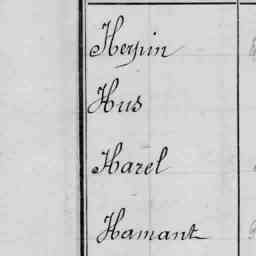 Herpin
Hus
Harel
Hamant